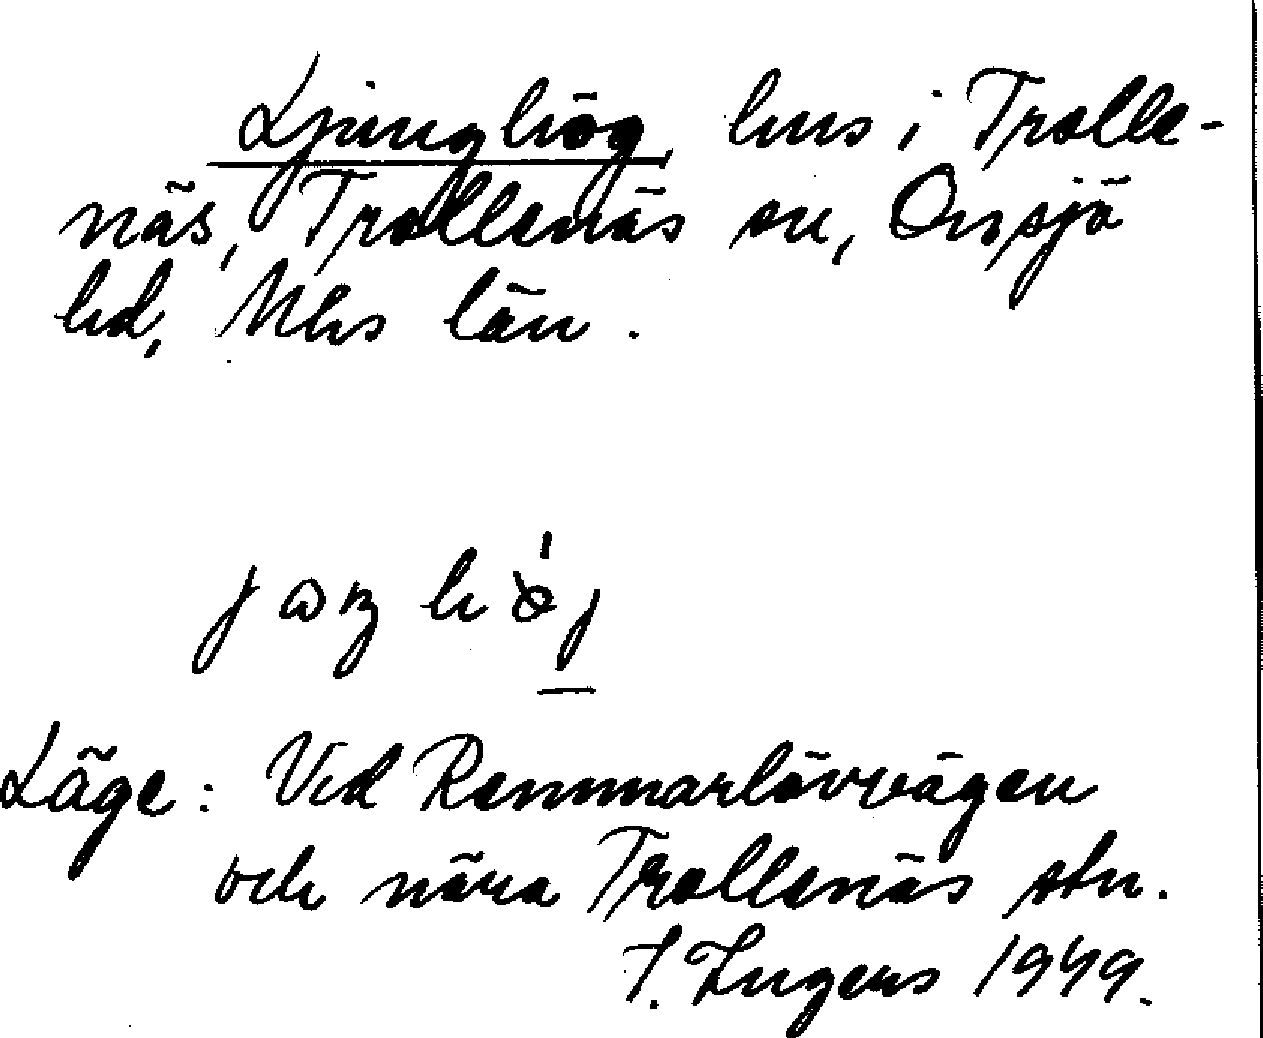 Ljunghög, hus i Trolle-
näs, Trollenäs sn, Onsjö
hd, Mhs län.
Läge: Vid Remmarlövvägen
och nära Trollenäs stn.
I. Ingers 1949.